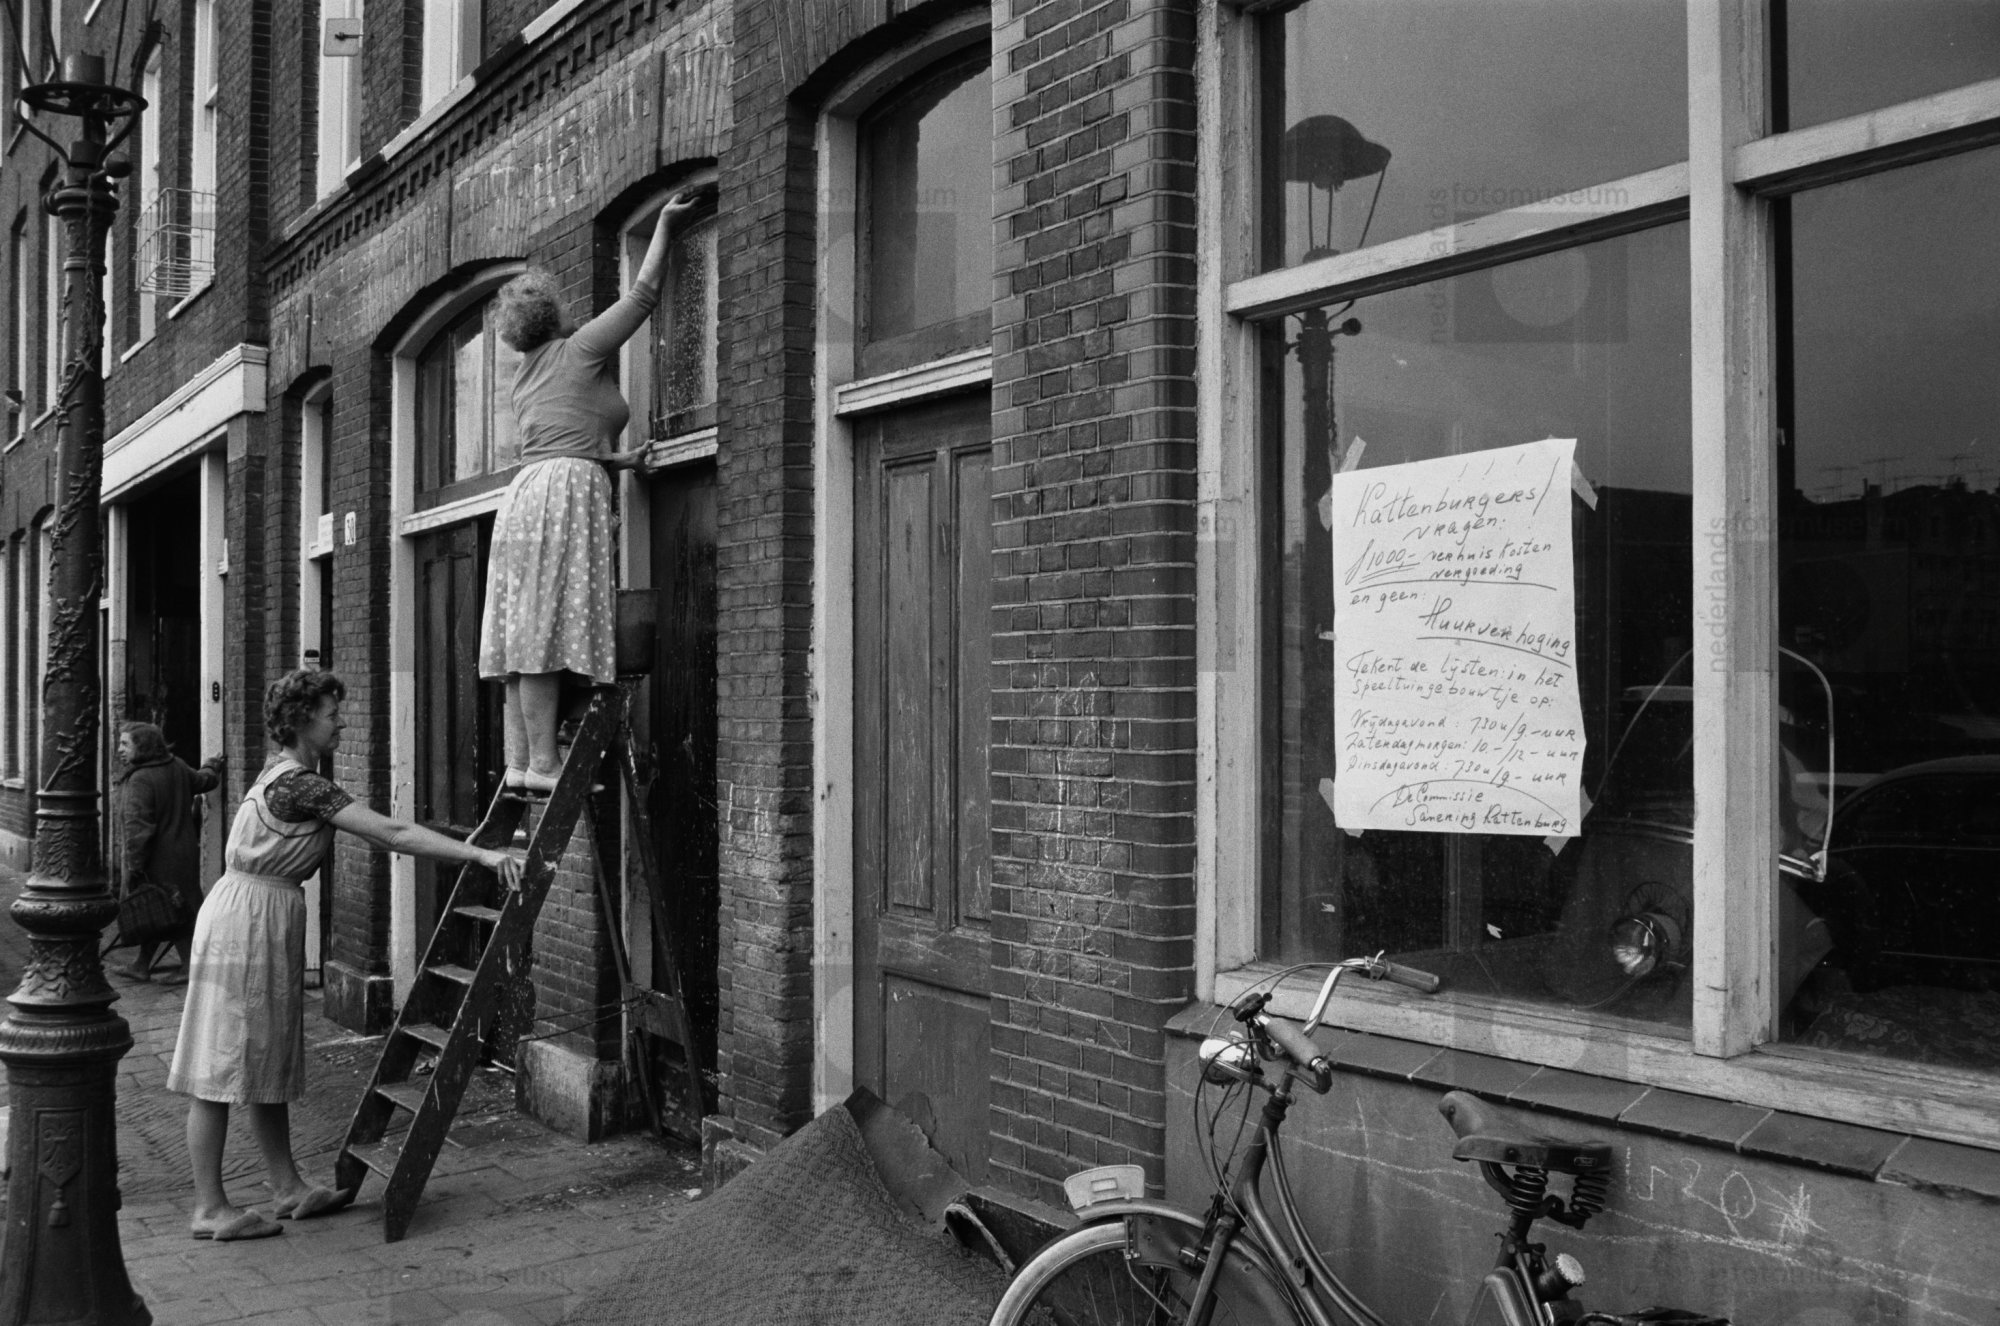 30
Kattenburgers!
vragen:
ƒ1000,- verhuis kosten
vergoeding
en geen:
Huurverhoging
Tekent de lijsten: in het
Speeltuingebouwtje op:
Vrijdagavond: 730u/9-uur
Zaterdagmorgen: 10,-/12- uur
Dinsdagavond: 730u/9- uur
De Commissie
Sanering Kattenburg
nederlands
fotomuseum